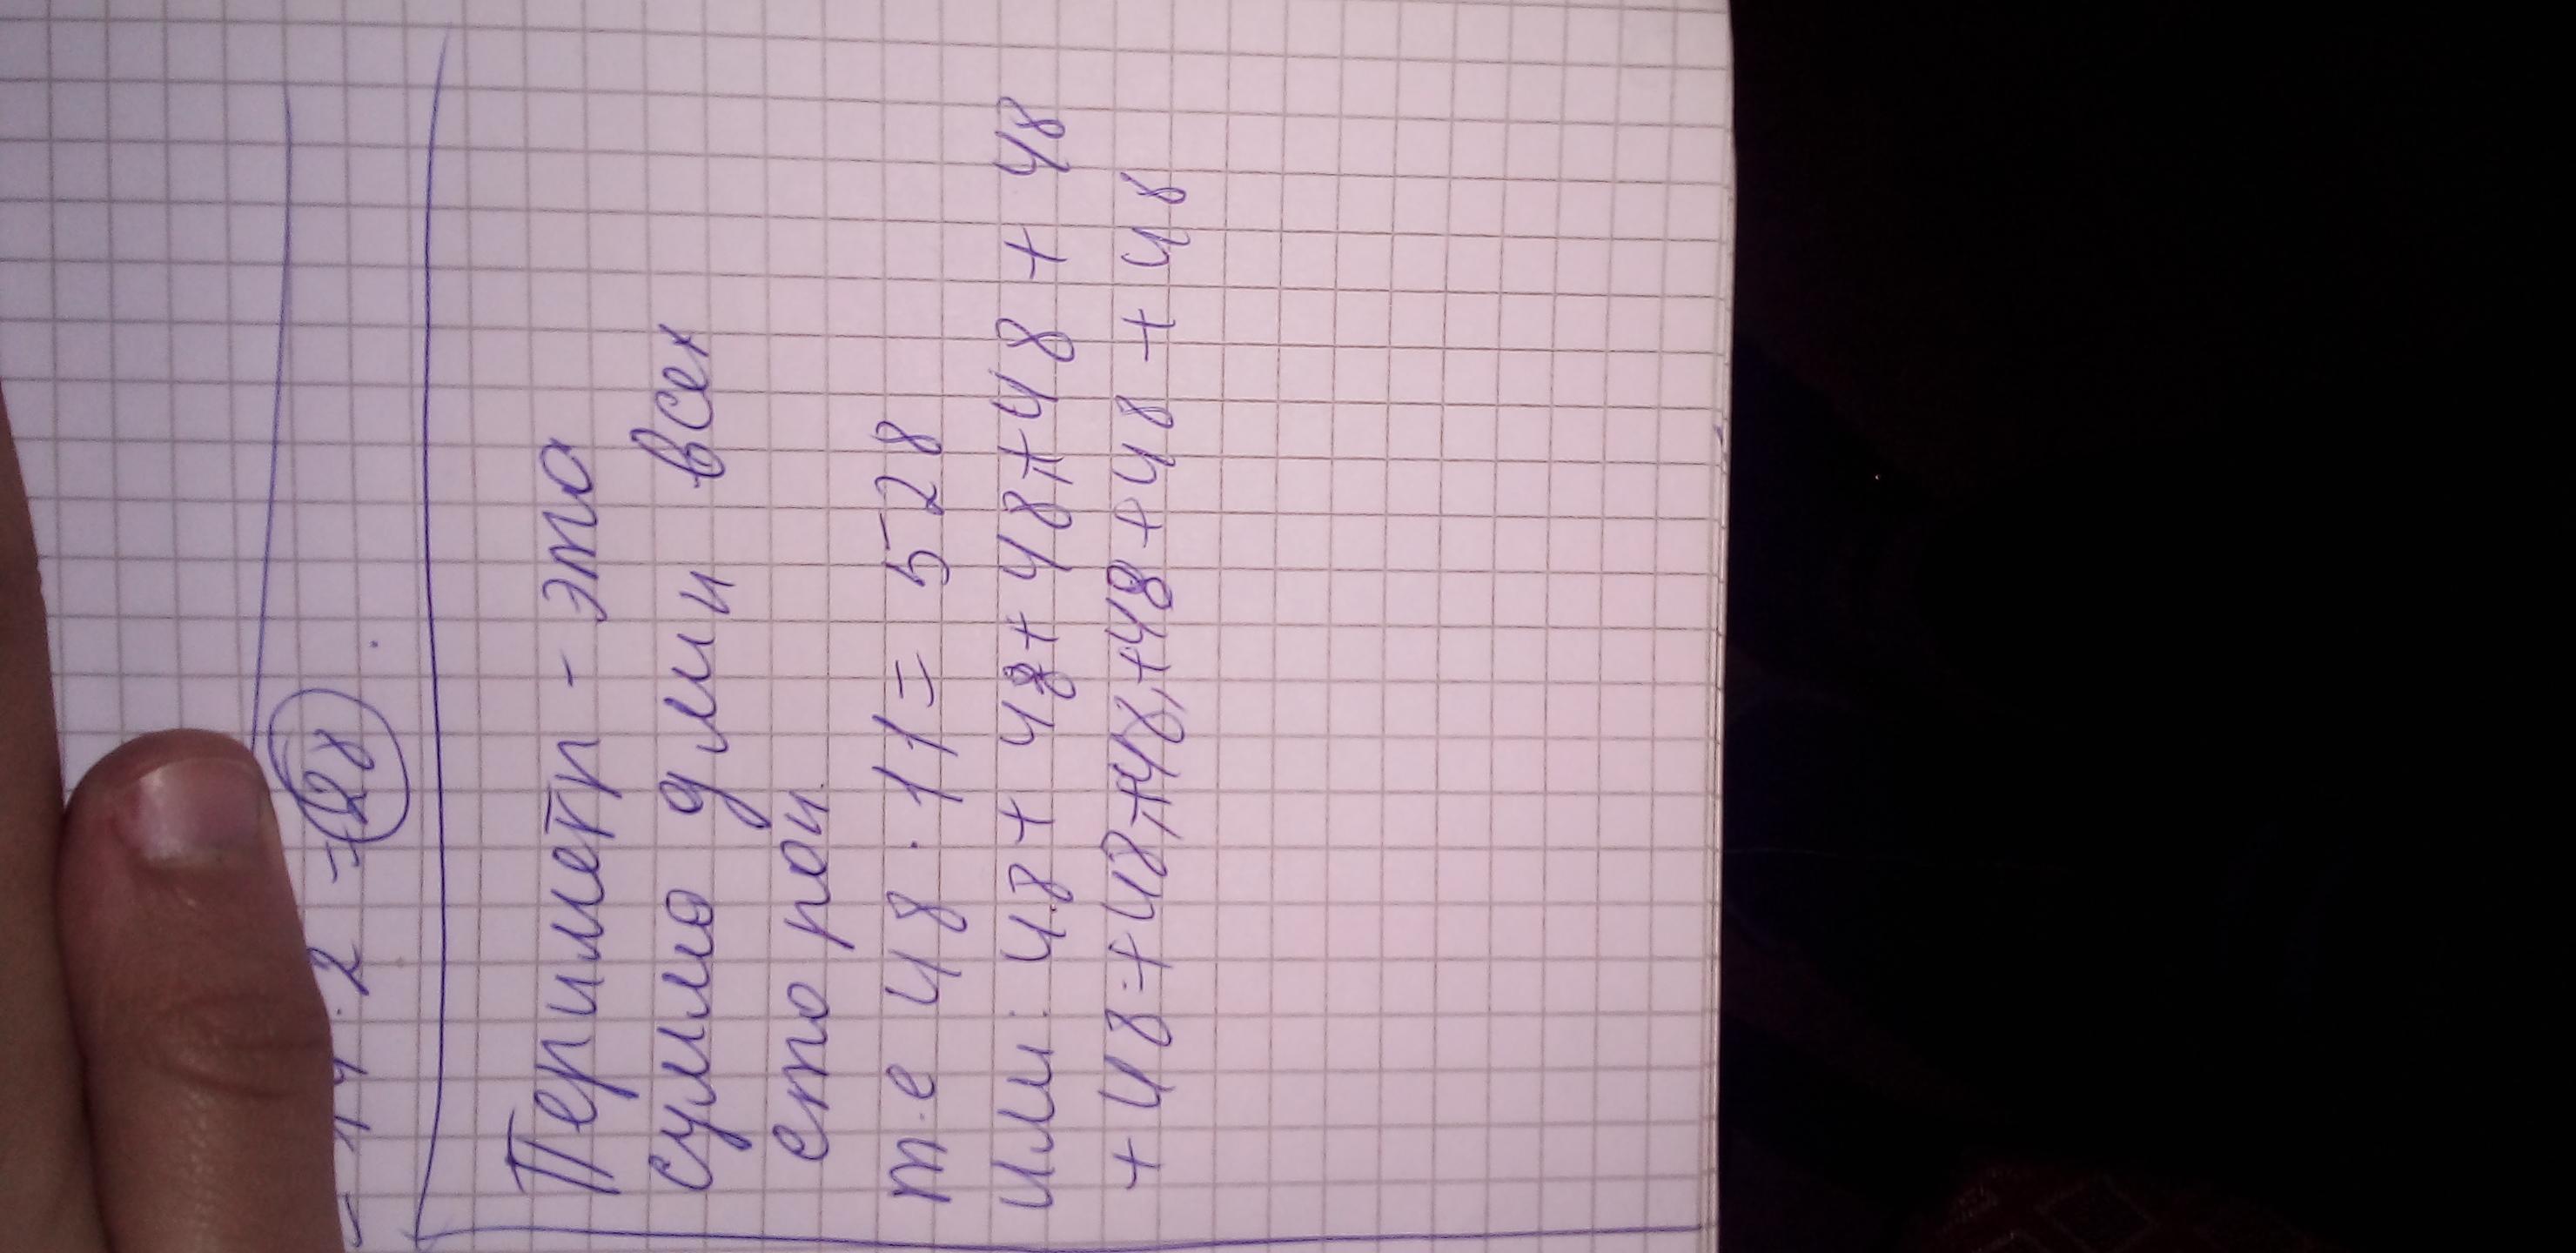 = 14 · 2 = 28
Периметр - это
сумма длин всех
сторон.
т.е 48 · 11 = 528
Или: 48 + 48 + 48 + 48 + 48
+ 48 + 48 + 48 + 48 + 48 + 48